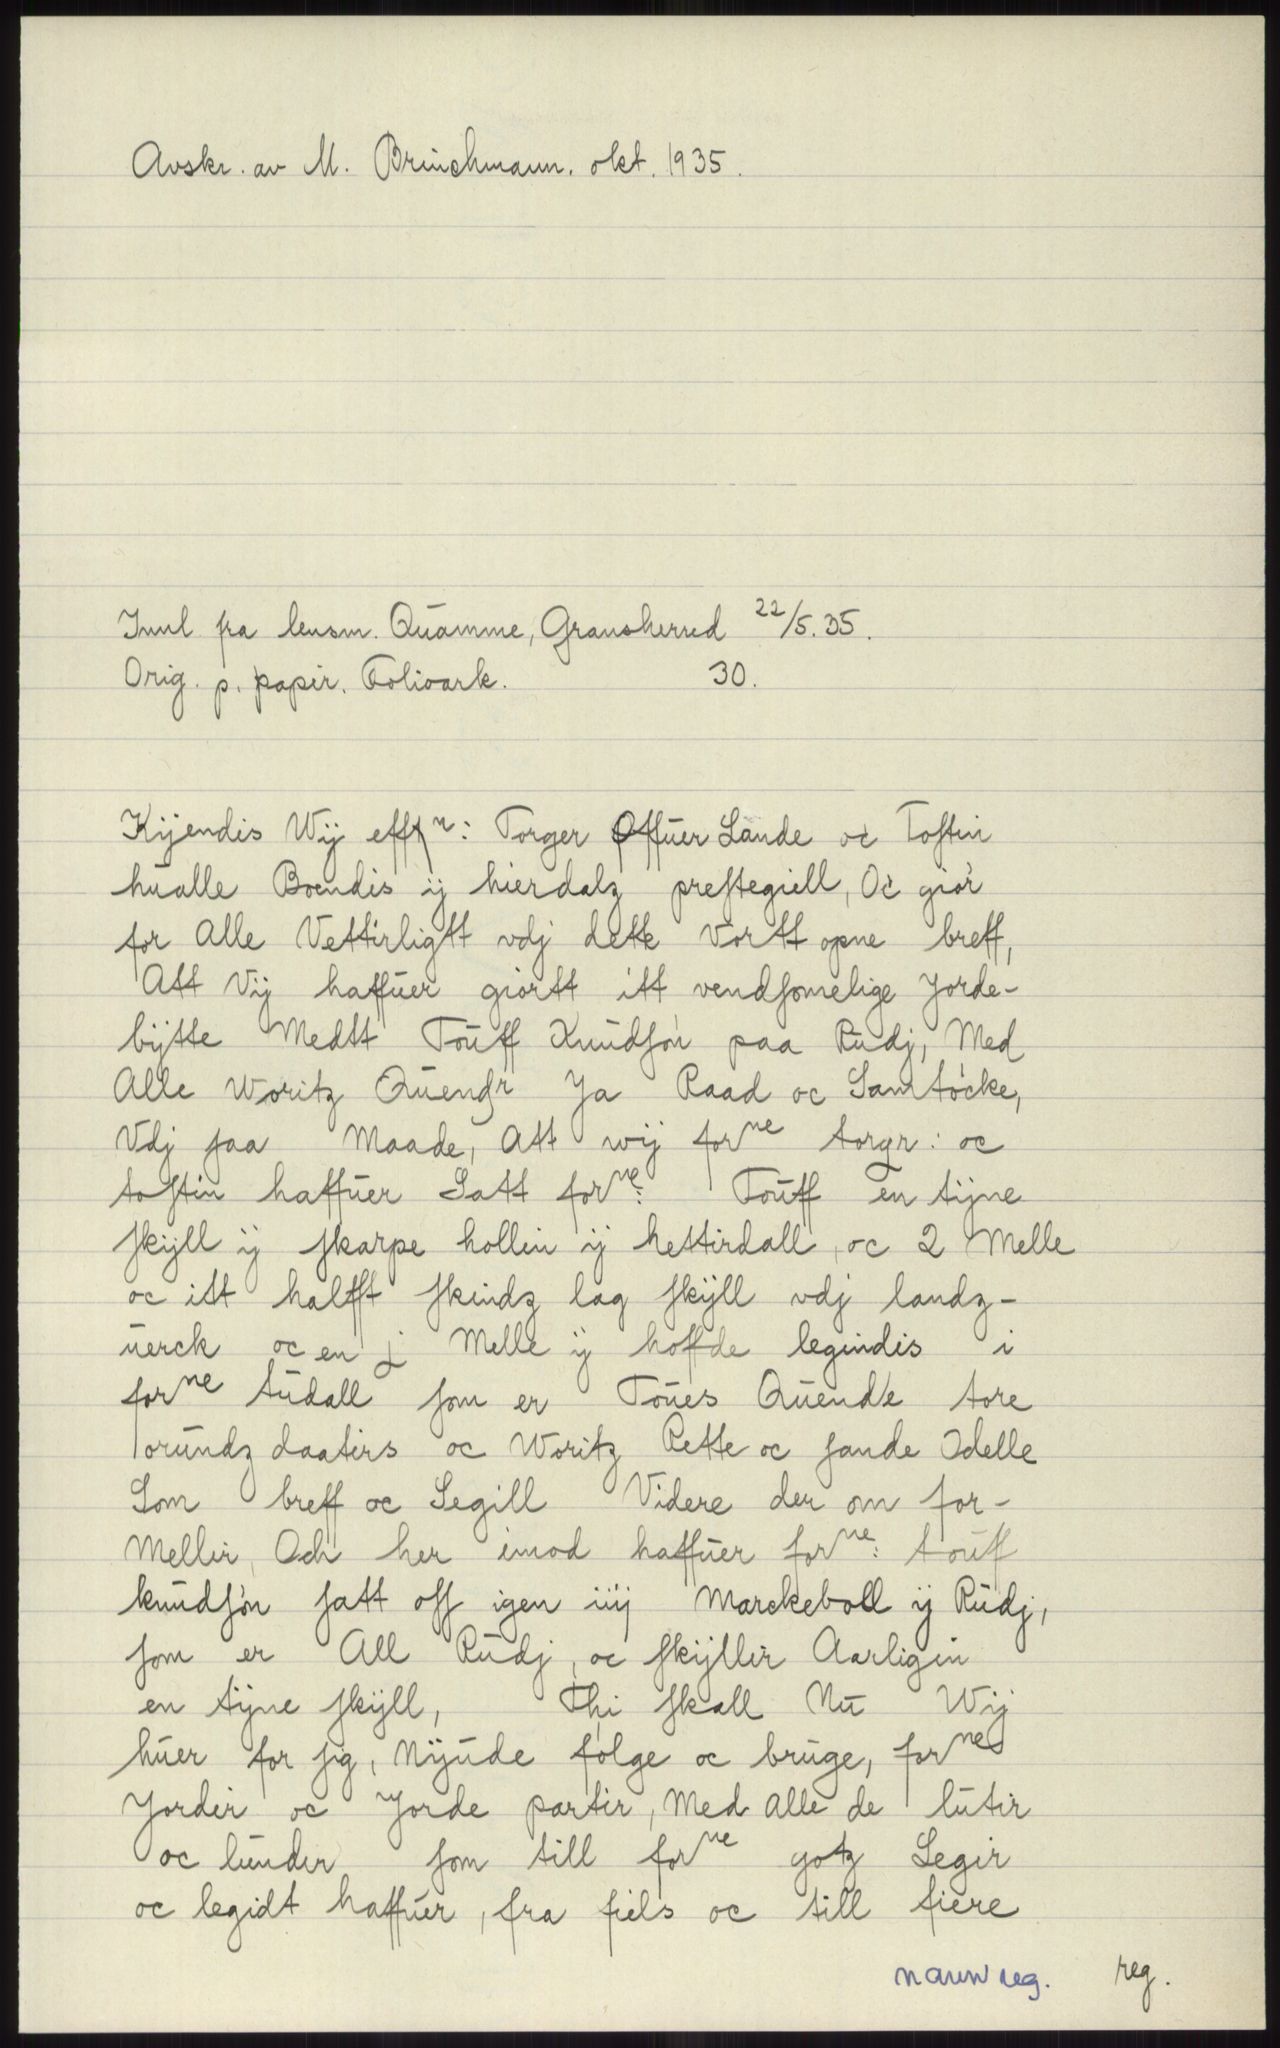 Avskr. av M. Brinchmann. okt. 1935.
Innl fra lensm. Quamme, Gransherred 22/5. 35.
Orig. p. papir. Folioark. 30.
Kijendis Wij efftn: Torger Offuer Lande oc Tostin
hualle Boendis ij hierdalz prestegiell, Oc giør
for Alle Vettirligtt vdj dette vortt opne breff,
Att Vij haffuer giortt itt vendsomelige Jorde-
bijtte Medtt Touff Knudsøn paa Rudj, Med
Alle Woritz Quendr Ja Raad oc Samtøcke,
Vdj saa Maade, Att wij forne torgr: oc
tostin haffuer Satt forne: Touff en tijne
skijll ij skarpe hollin ij hettirdall, oc 2 Melle
oc itt halfft skindz lag skijll vdj landz-
uerck oc en j Melle ij hoffde legindis i
forne tudall som er Toues Quende tore
orundz daatirs oc Woritz Rette oc sande Odelle
Som breff oc Segill Videre der om for-
Mellir, Och her imod haffuer forne: touff
knudsøn satt oss igen iiij Marckeboll ij Rudj,
som er All Rudj, oc skijllir Aarligin
en tijne skijll, Thi skall Nu Wij
huer for sig, Nijude følge oc bruge, fornes
Jordir oc Jorde partir, Med alle de lutir
oc lundir som till forne gotz Legir
oc legidt haffuer, fra fiels oc till fiere
navnreg. reg.